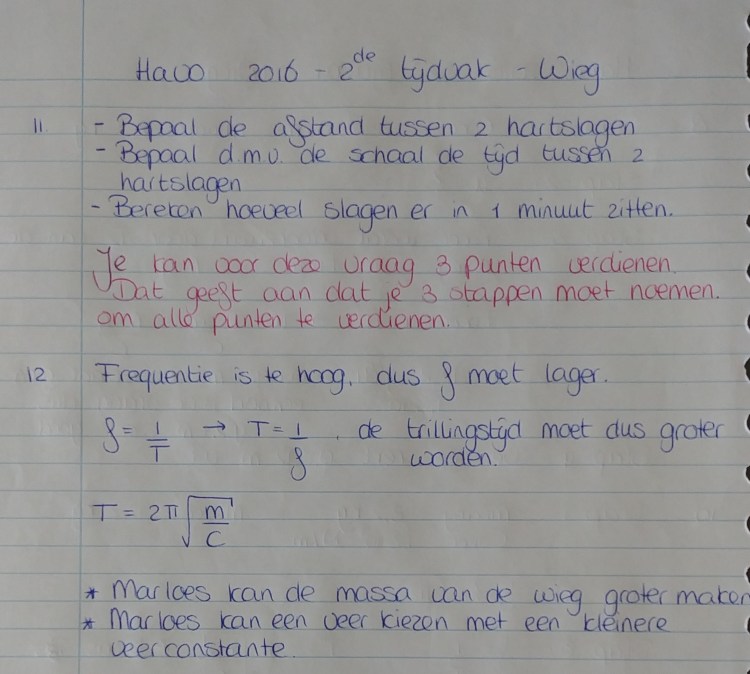 Havo 2016 - 2de tijdvak - Wieg
11 - Bepaal de afstand tussen 2 hartslagen
- Bepaal d.m.v. de schaal de tijd tussen 2
hartslagen
- Bereken hoeveel slagen er in 1 minuut zitten.
Je kan voor deze vraag 3 punten verdienen.
Dat geeft aan dat je 3 stappen moet noemen.
om alle punten te verdienen.
12 Frequentie is te hoog, dus f moet lager.
f = 1/T → T = 1/f , de trillingstijd moet dus groter
worden.
T = 2π√(m/C)
* Marloes kan de massa van de wieg groter maken
* Marloes kan een veer kiezen met een kleinere
veerconstante.